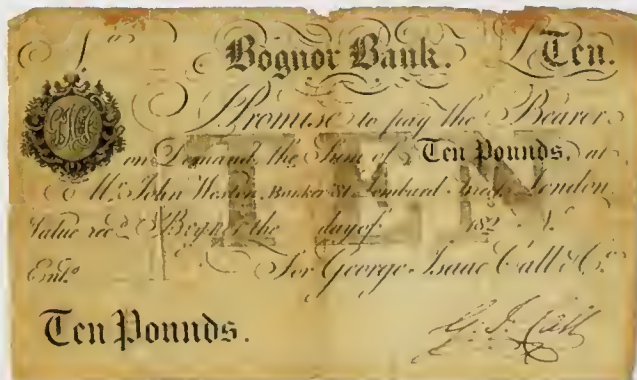 Bognor Bank. £ Ten.
I Promise to pay the Bearer
on Demand the Sum of Ten Pounds, at
Mr. John Weston, Banker Lombard Street London
Value recd. Bognor the day of 182 No.
Entd. For George Isaac Call & Co.
Ten Pounds. G. I. Call
TEN